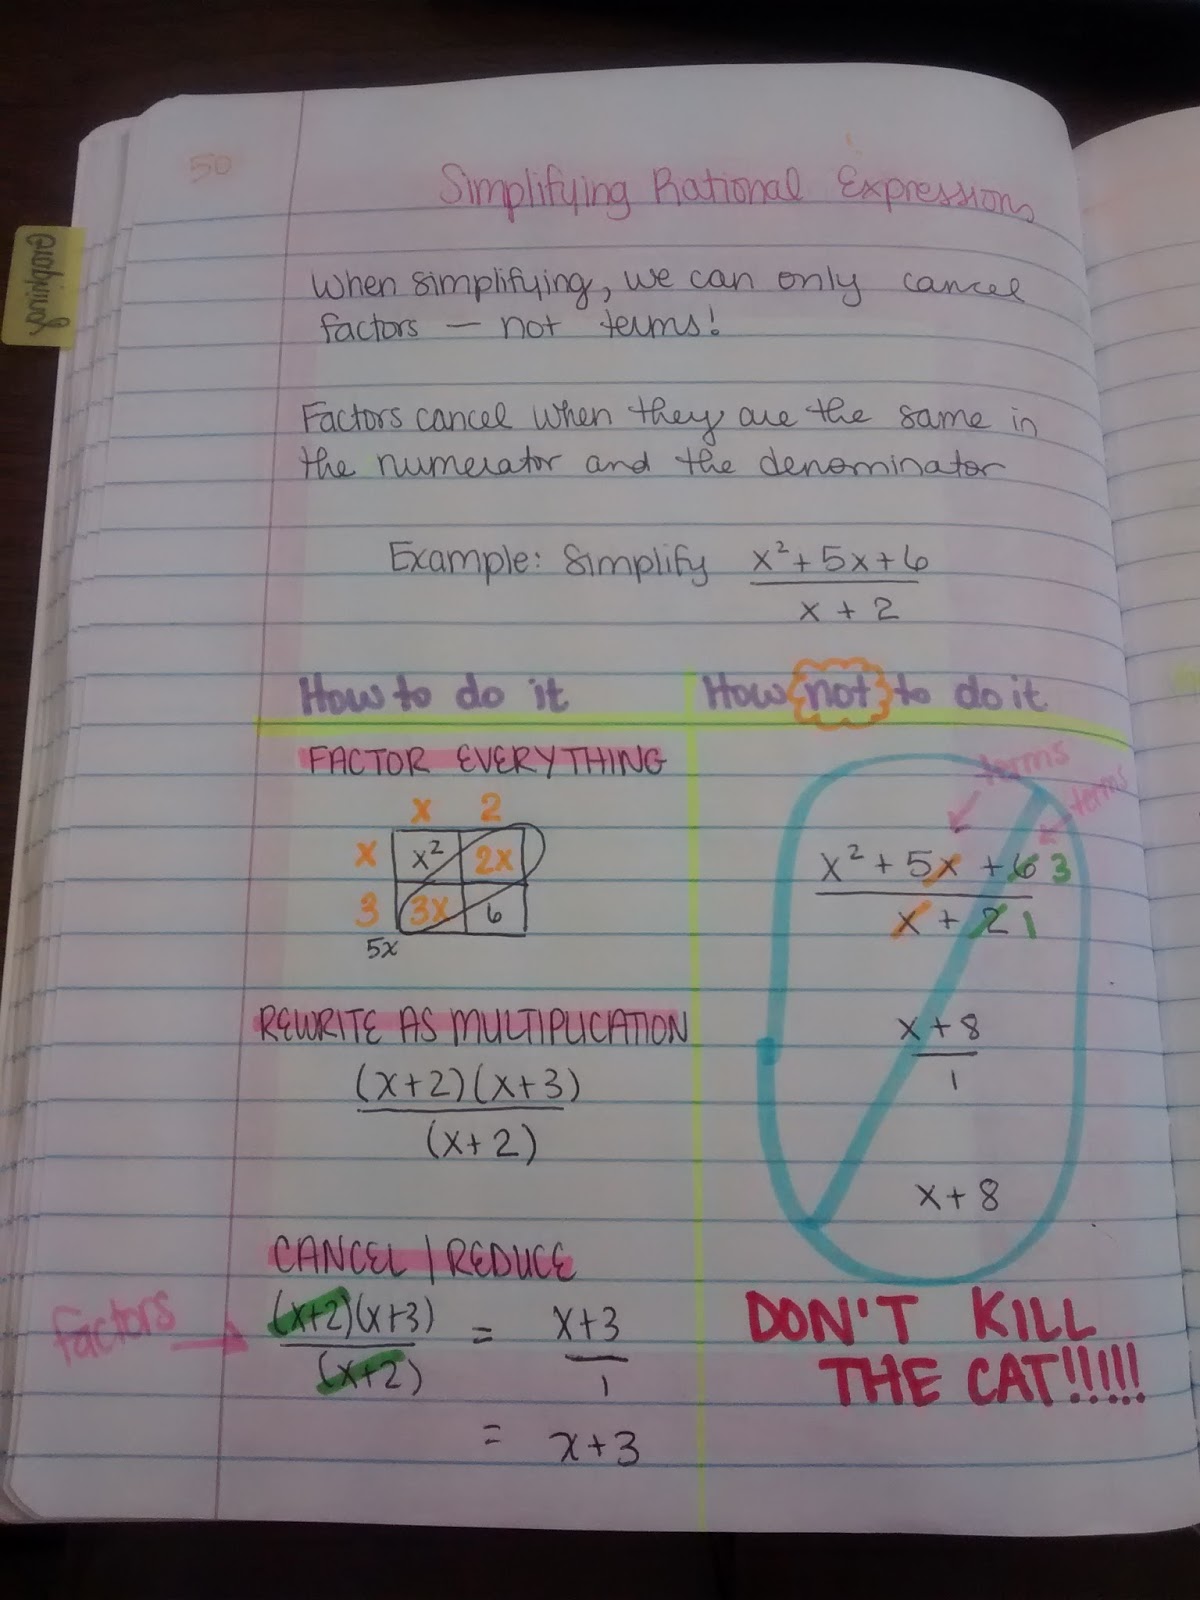 50
Simplifying Rational Expressions
When simplifying, we can only cancel
factors — not terms!
Factors cancel when they are the same in
the numerator and the denominator
Example: Simplify x² + 5x + 6
x + 2
How to do it
FACTOR EVERYTHING
x 2
x x² 2x
3 3x 6
5x
REWRITE AS MULTIPLICATION
(x+2)(x+3)
(x+2)
CANCEL / REDUCE
factors
(x+2)(x+3) = x+3
(x+2) 1
= x+3
How not to do it
terms
terms
x² + 5x + 6 3
x + 2 1
x + 8
1
x + 8
DON'T KILL
THE CAT!!!!!